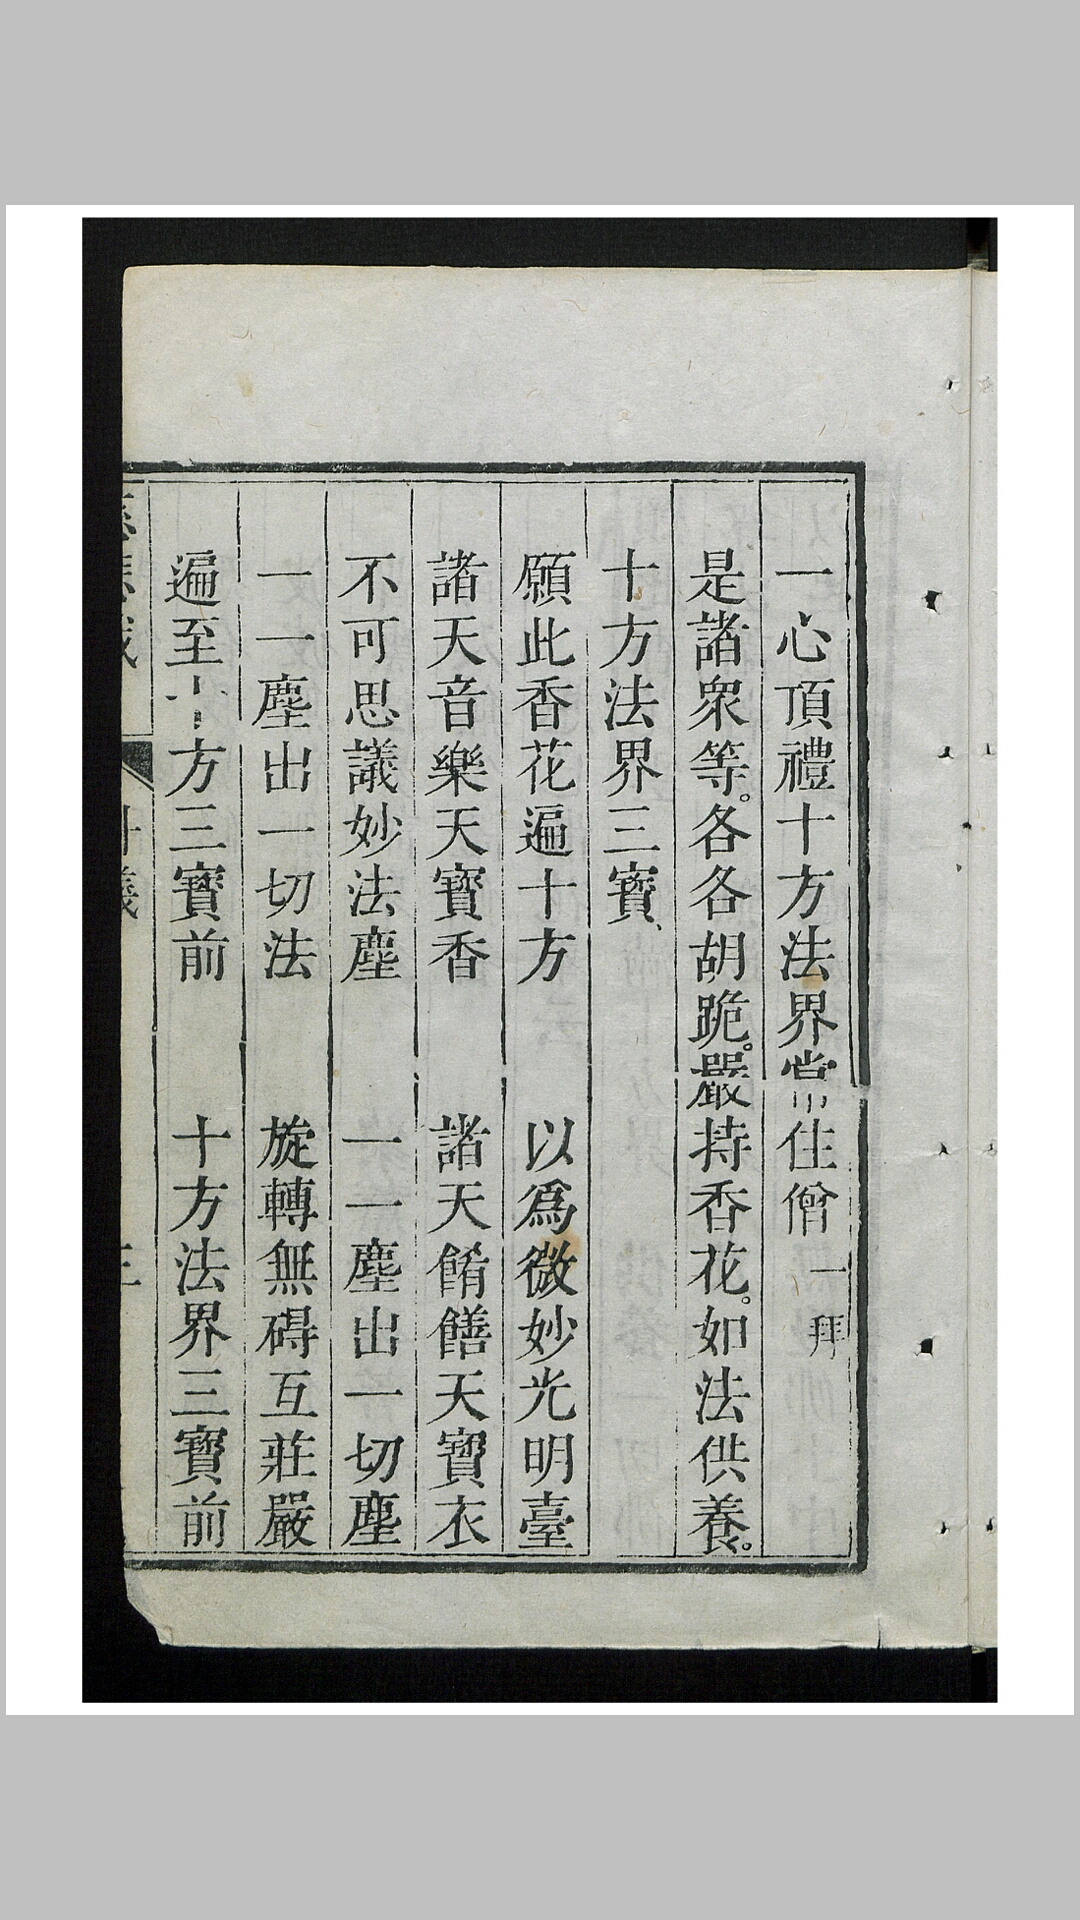 一心頂禮十方法界常住僧一拜
是諸衆等。各各胡跪。嚴持香花。如法供養。
十方法界三寳、
願此香花遍十方 以爲微妙光明臺
諸天音樂天寳香 諸天餚饍天寳衣
不可思議妙法塵 一一塵出一切塵
一一塵出一切法 旋轉無碍互莊嚴
遍至十方三寳前 十方法界三寳前
三